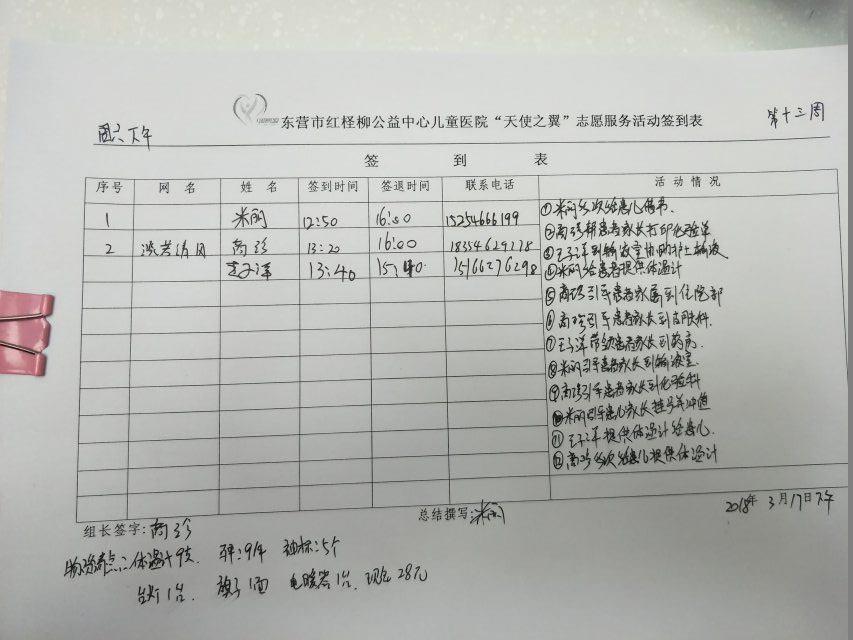 东营市红柽柳公益中心儿童医院“天使之翼”志愿服务活动签到表
第十三周
周六下午
签 到 表
序号 网 名 姓 名 签到时间 签退时间 联系电话 活 动 情 况
1 米丽 12:50 16:00 15254666199
2 淡若清风 商珍 13:20 16:00 18354629278
王子洋 13:40 15:40 15166276298
①米丽多次给患儿借书.
②商珍帮患者家长打印化验单
③王子洋到输液室协助护士输液
④米丽给患者提供体温计
⑤商珍引导患者家属到住院部
⑥商珍引导患者家长到科.
⑦王子洋带领患者家长到药房.
⑧米丽引导患者家长到输液室.
⑨商珍引导患者家长到化验科
⑩米丽引导患儿家长挂号并冲值
⑪王子洋提供体温计给患儿.
⑫商珍多次给患儿提供体温计
2018年3月17日下午
组长签字:商珍
总结撰写:米丽
物资清点:体温计9支. :9件 袖标:5个
台灯1台. 旗子1面 电暖器1台. 现金28元